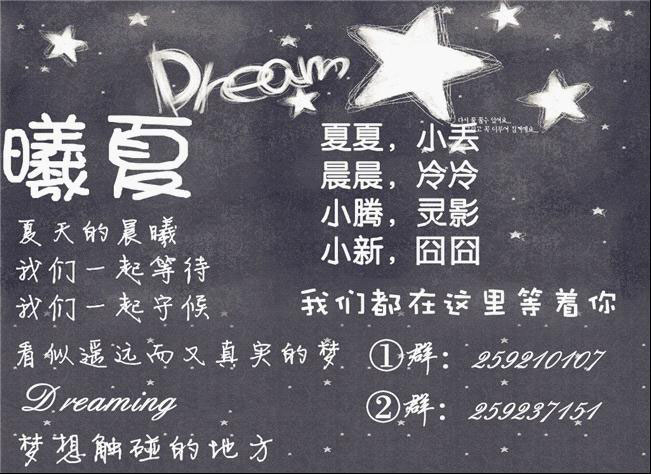 Dream
다시 꿈 꿀수 있어요...
曦夏
夏夏，小丢
晨晨，冷冷
小腾，灵影
小新，囧囧
夏天的晨曦
我们一起等待
我们一起守候
我们都在这里等着你
看似遥远而又真实的梦
①群：259210107
Dreaming
②群：259237151
梦想触碰的地方